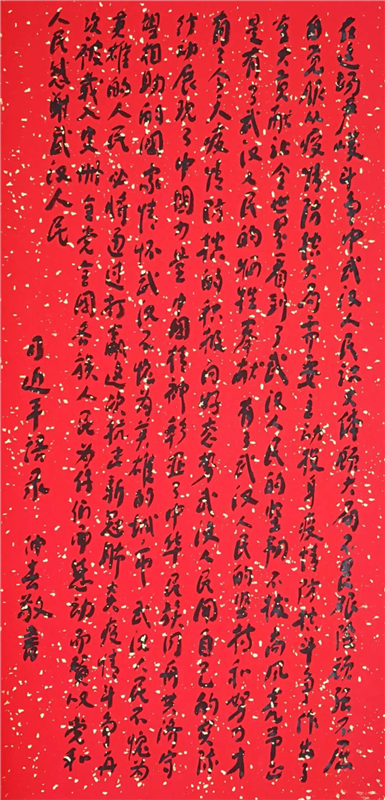 在这场严峻斗争中武汉人民识大体顾大局不畏艰险顽强不屈
自觉服从疫情防控大局需要主动投身疫情防控斗争作出了
重大贡献让全世界看到了武汉人民的坚韧不拔高风亮节正
是有了武汉人民的牺牲奉献有了武汉人民的坚持和努力才
有了今天疫情防控的积极向好态势武汉人民用自己的实际
行动展现了中国力量中国精神彰显了中华民族同舟共济守
望相助的国家情怀武汉不愧为英雄的城市武汉人民不愧为
英雄的人民必将通过打赢这次抗击新冠肺炎疫情斗争再
次被载入史册全党全国各族人民为你们而感动而赞党和
人民感谢武汉人民
习近平语录 仲春敬書